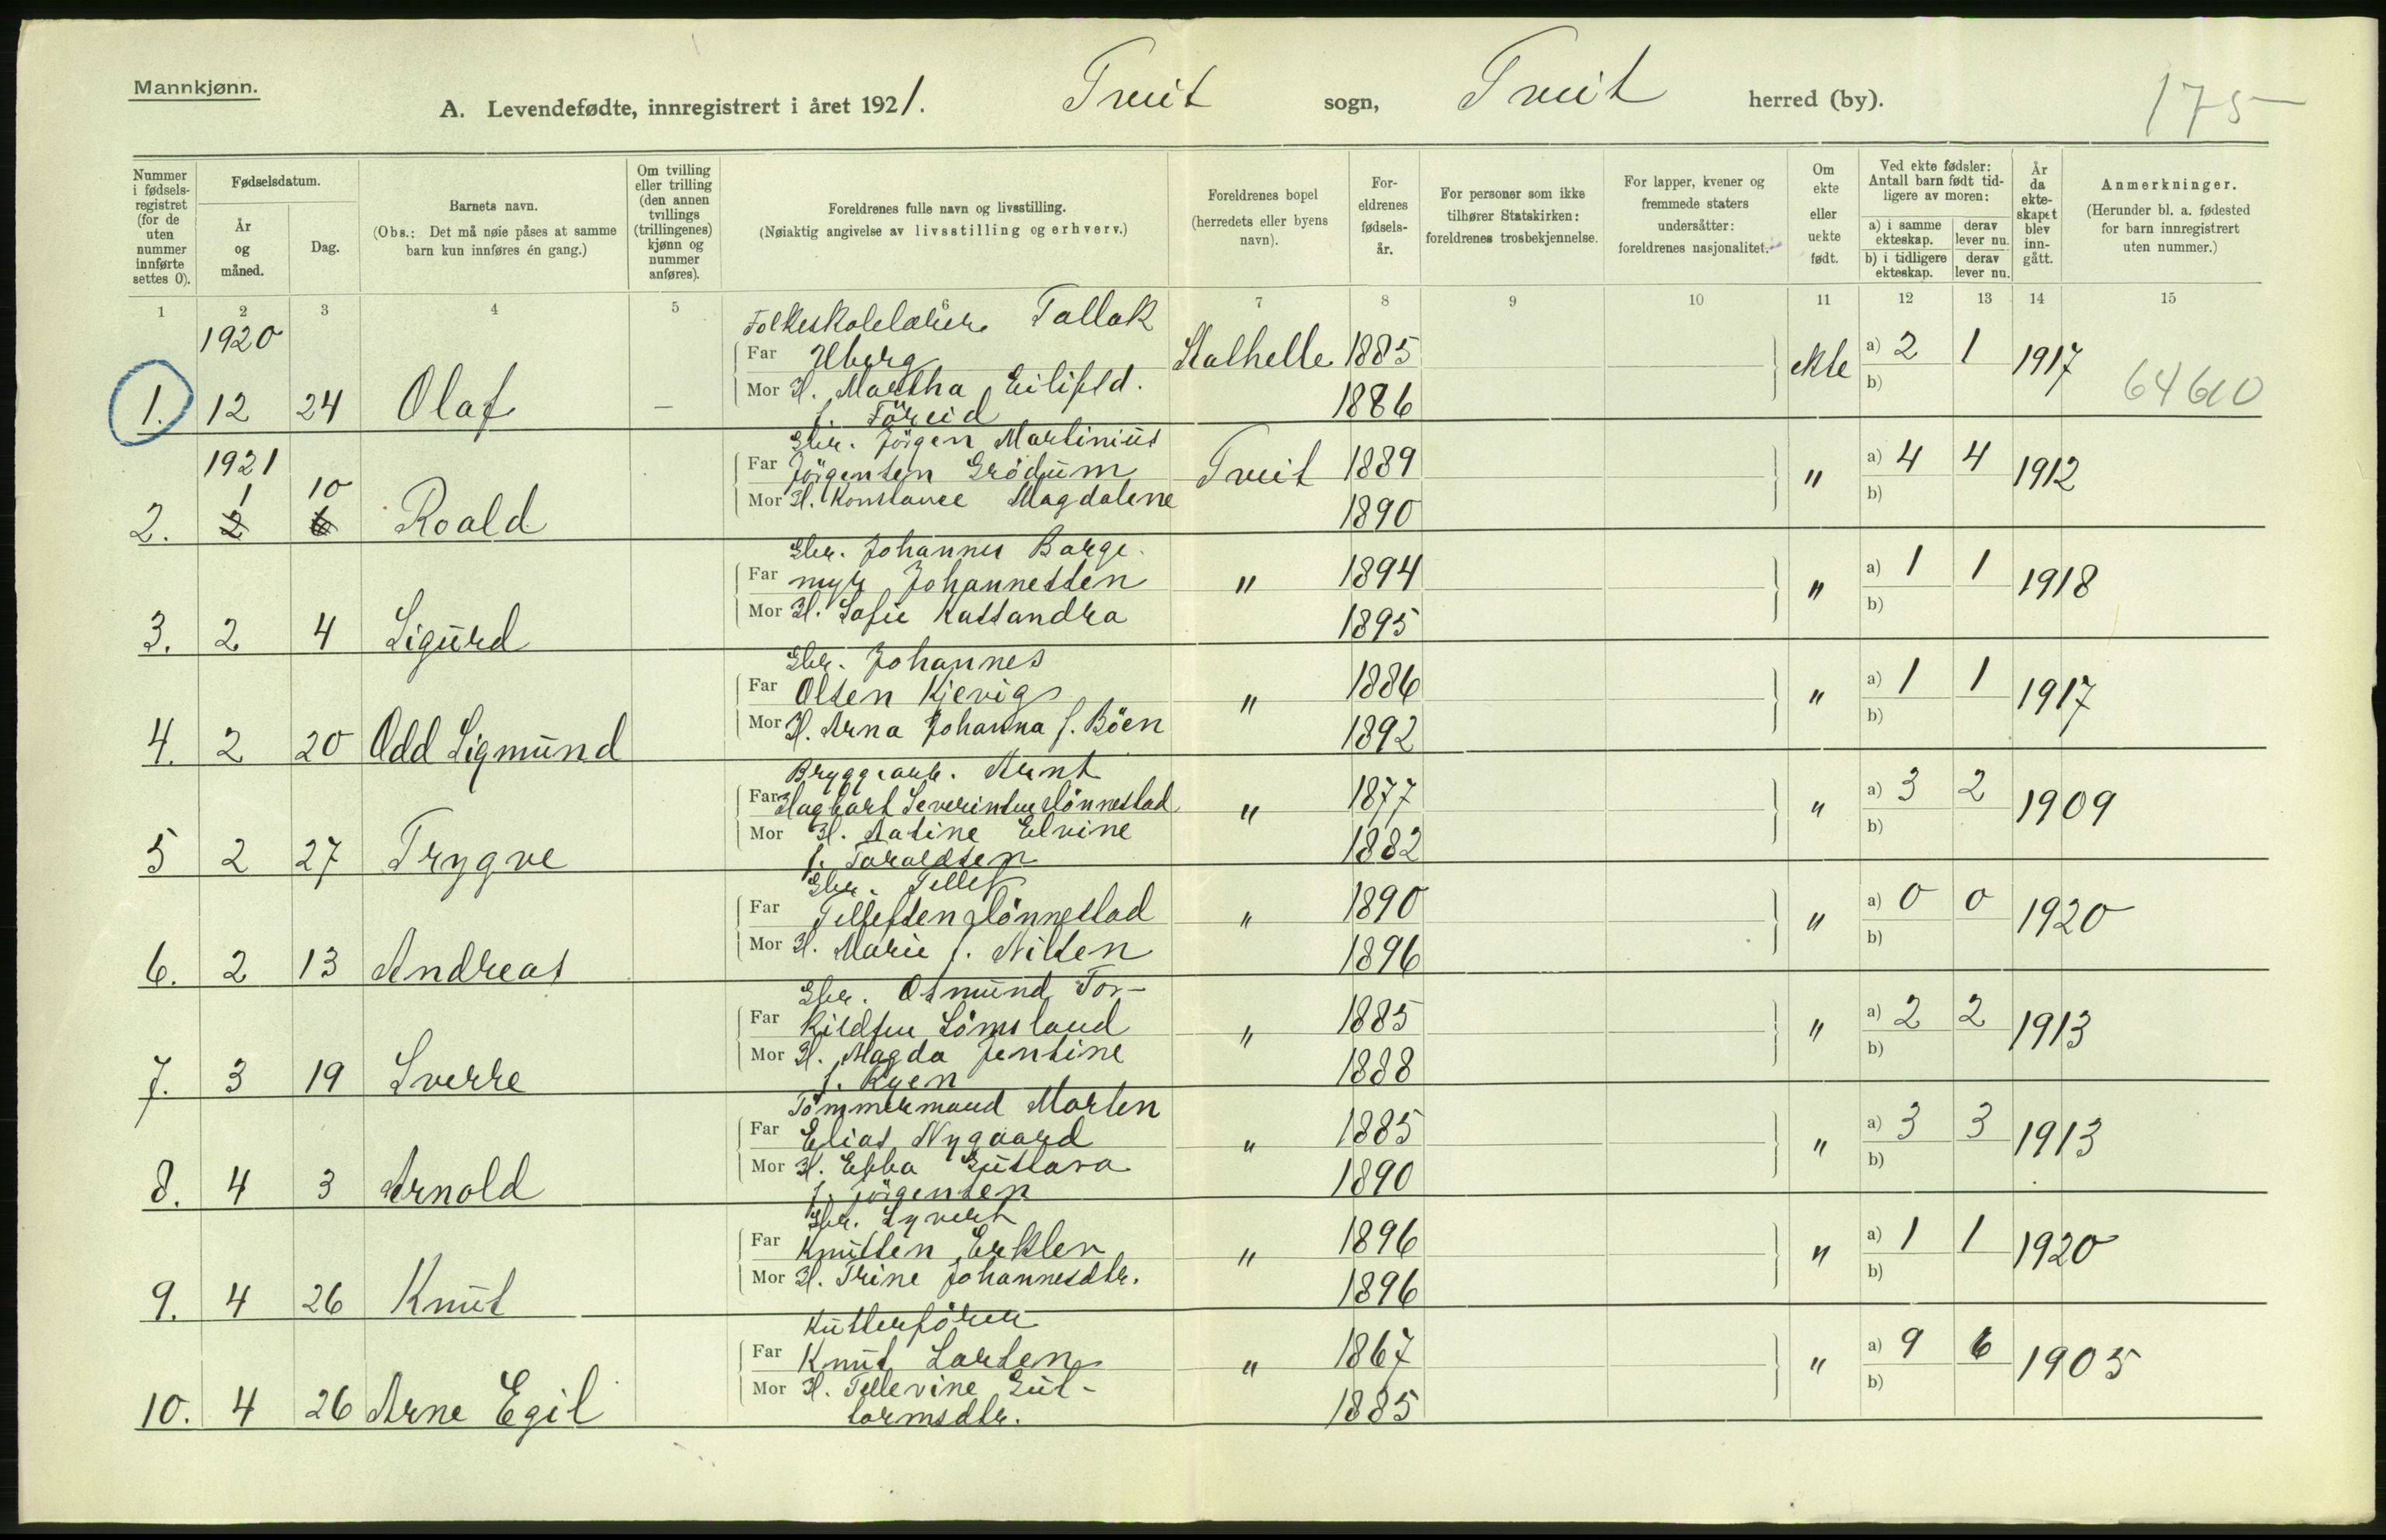 Mannkjønn.
A. Levendefødte, innregistrert i året 1921. Tveit sogn, Tveit herred (by). 175
Nummer i fødsels-registret (for de uten nummer innførte settes 0).
Fødselsdatum.
År og måned.
Dag.
Barnets navn.
(Obs.: Det må nøie påses at samme barn kun innføres én gang.)
Om tvilling eller trilling (den annen tvillings (trillingenes) kjønn og nummer anføres).
Foreldrenes fulle navn og livsstilling.
(Nøiaktig angivelse av livsstilling og erhverv.)
Foreldrenes bopel (herredets eller byens navn).
For-eldrenes fødsels-år.
For personer som ikke tilhører Statskirken: foreldrenes trosbekjennelse.
For lapper, kvener og fremmede staters undersåtter: foreldrenes nasjonalitet.
Om ekte eller uekte født.
Ved ekte fødsler: Antall barn født tid-ligere av moren:
a) i samme ekteskap. derav lever nu.
b) i tidligere ekteskap. derav lever nu.
År da ekte-skapet blev inn-gått.
Anmerkninger.
(Herunder bl. a. fødested for barn innregistrert uten nummer.)
1 2 3 4 5 6 7 8 9 10 11 12 13 14 15
1920 Folkeskolelærer Tallak
Far Uberg Stathelle 1885 ekte a) 2 1 1917
1. 12 24 Olaf — Mor H. Martha Eilifsd. b) 64610
f. Föreid 1886
1921 Gbr. Jörgen Martinius
Far Jörgensen Grödum Tveit 1889 " a) 4 4 1912
1 10 Mor H. Konstance Magdalene b)
2. 2 6 Roald 1890
Gbr. Johannes Barge-
Far myr Johannessen " 1894 " a) 1 1 1918
Mor H. Sofie Kassandra b)
3. 2 4 Sigurd 1895
Gbr. Johannes
Far Olsen Kjevig " 1886 " a) 1 1 1917
Mor H. Arna Johanna f. Böen b)
4. 2 20 Odd Sigmund 1892
Bryggearb. Arnt
Far Hagbart Severinsen Hönnestad " 1877 " a) 3 2 1909
Mor H. Aasine Elvine b)
5 2 27 Trygve f. Taraldsen 1882
Gbr. Tellef
Far Tellefsen Hönnestad " 1890 " a) 0 0 1920
Mor H. Marie f. Nilsen b)
6. 2 13 Andreas 1896
Gbr. Osmund Tor-
Far kildsen Sömsland " 1885 " a) 2 2 1913
Mor H. Magda Jensine b)
7. 3 19 Sverre f. Ryen 1888
Tömmermand Morten
Far Elias Nygaard " 1885 " a) 3 3 1913
Mor H. Ebba Gustava b)
8. 4 3 Arnold f. Jörgensen 1890
Gbr. Syvert
Far Knutsen Erklev " 1896 " a) 1 1 1920
Mor H. Trine Johannesdtr. b)
9. 4 26 Knut 1896
Kutterförer
Far Knut Larsen " 1867 " a) 9 6 1905
Mor H. Tellevine Gut- b)
10. 4 26 Arne Egil tormsdtr. 1885